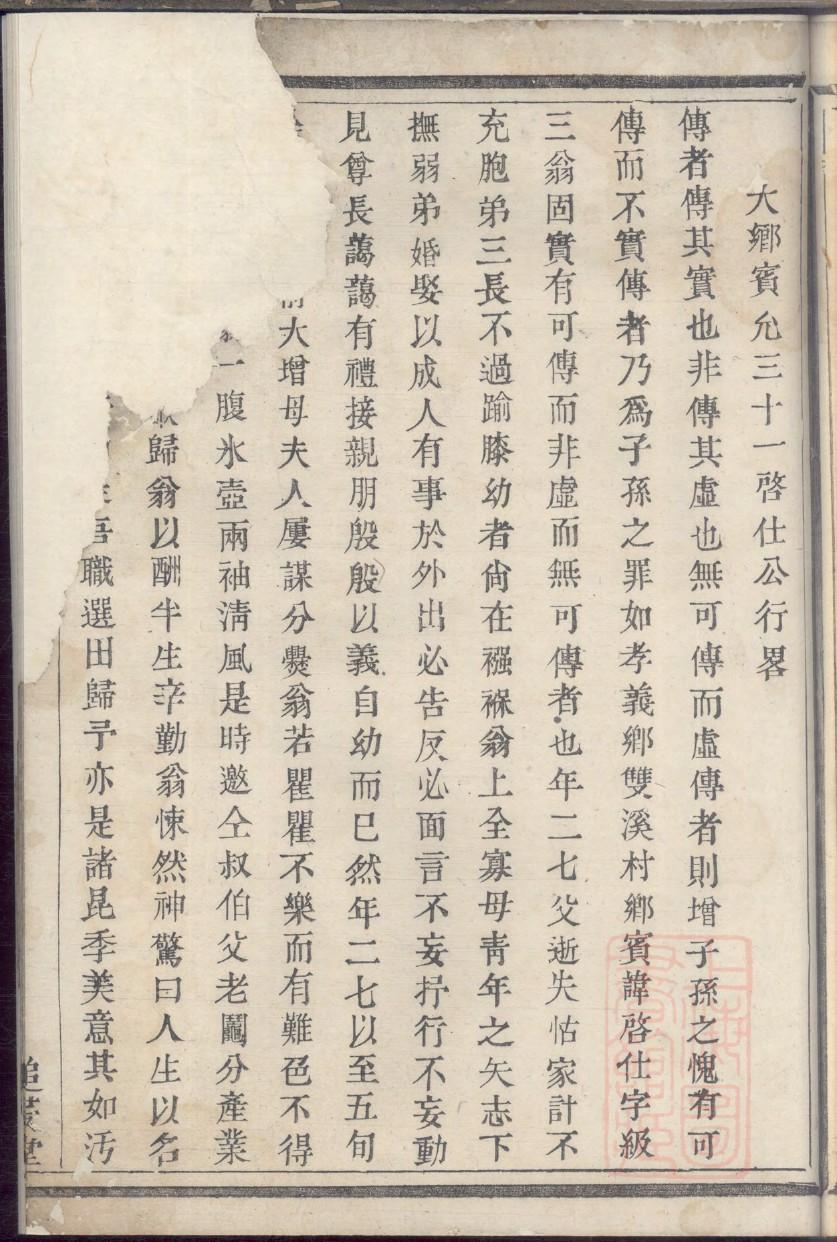 大鄉賓允三十一啓仕公行畧
傳者傳其實也非傳其虛也無可傳而虛傳者則增子孫之愧有可
傳而不實傳者乃爲子孫之罪如孝義鄉雙溪村鄉賓諱啓仕字級
三翁固實有可傳而非虛而無可傳者也年二七父逝失怙家計不
充胞弟三長不過踰膝幼者尙在襁褓翁上全寡母靑年之矢志下
撫弱弟婚娶以成人有事於外出必告反必面言不妄抒行不妄動
見尊長藹藹有禮接親朋殷殷以義自幼而已然年二七以至五旬
大增母夫人屢謀分爨翁若瞿瞿不樂而有難色不得
一腹氷壺兩袖淸風是時邀仝叔伯父老鬮分產業
歸翁以酬半生辛勤翁悚然神驚曰人生以名
吾職選田歸予亦是諸昆季美意其如汚
追荿堂